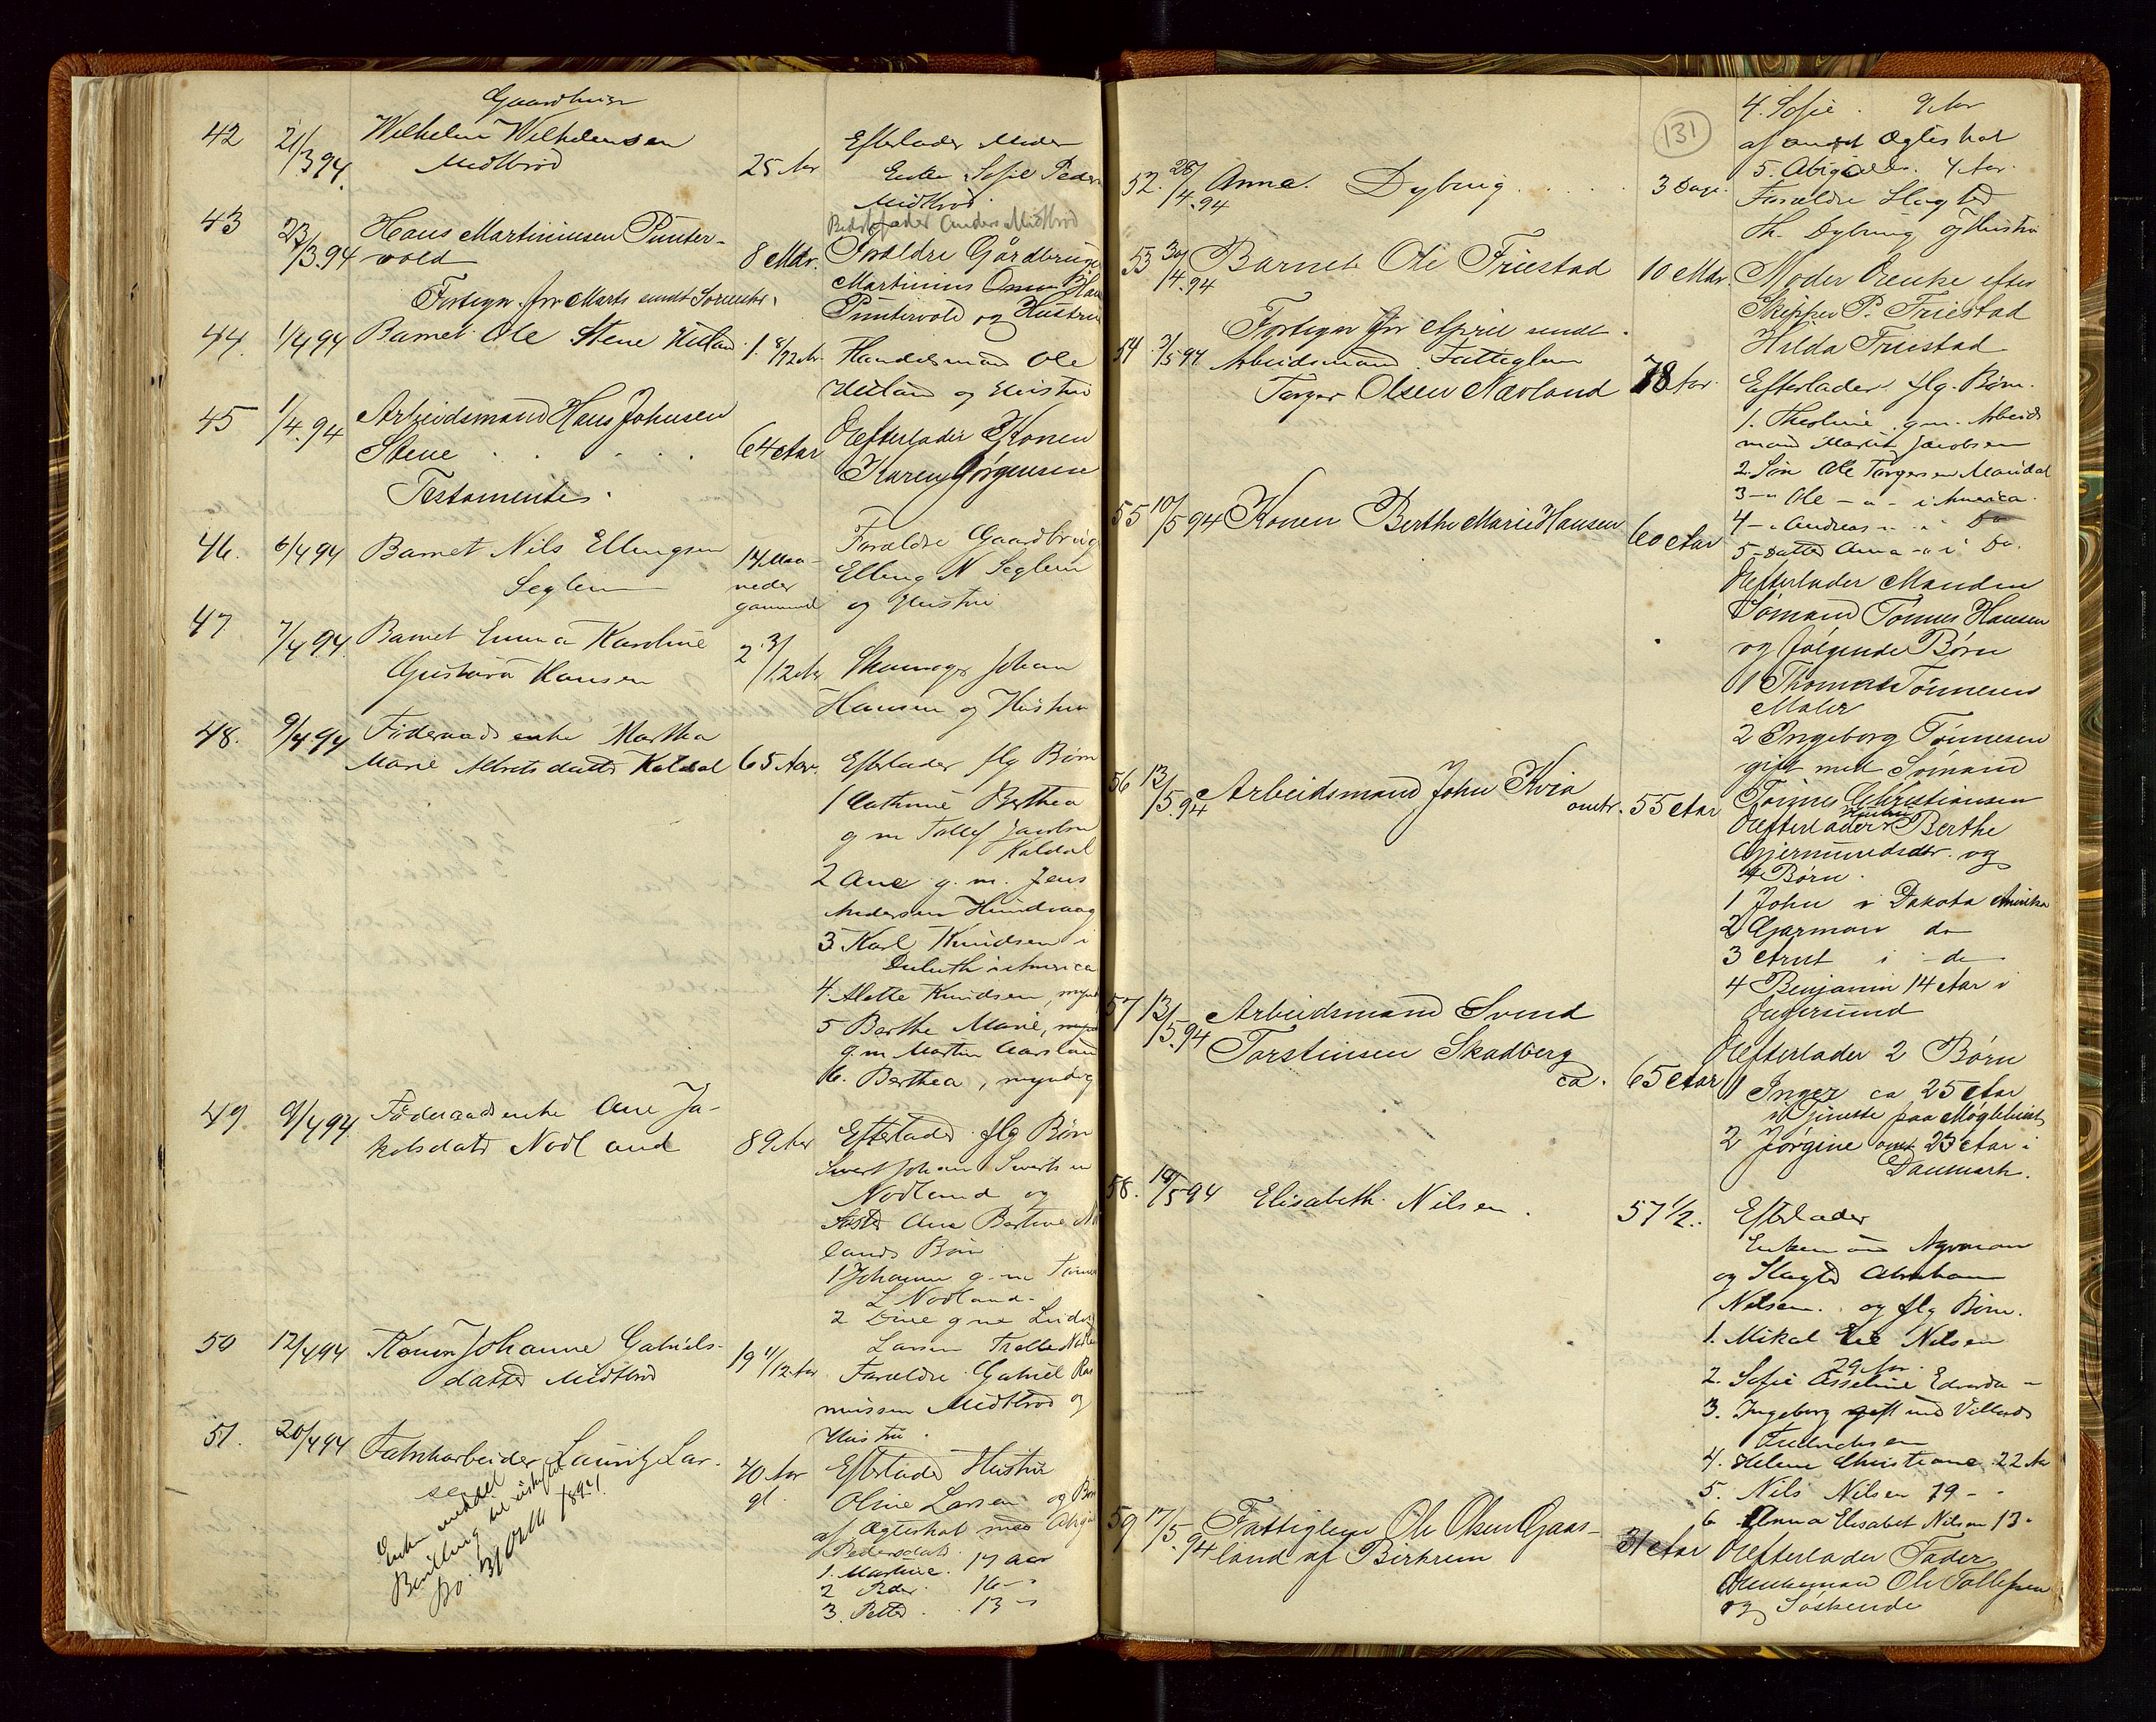 Gaardbruger
42 21/3 94. Wilhelm Wilhelmsen
Midtbrød 25 Aar Efterlader Moder
Enke Sofie Peder
Midtbrød
Bedstefader Anders Midtbrød
43 23/3.94 Hans Martiniusen Punter-
vold 8 Mdr. Forældre Gårdbruger
Martinius Han
Puntervold og Hustru
Fortegn. for Marts sendt Sorenskr.
44. 1/4 94 Barnet Ole Stene Hetland 1 8/12 Aar Handelsmand Ole
Hetland og Hustru
45 1/4.94 Arbeidsmand Hans Johnsen
Stene . . . . 64 Aar Efterlader Konen
Karen Jørgensen
Testamente.
46. 6/4 94 Barnet Nils Ellingsen
Seglem 14 Maa-
neder
gammel Forældre Gaardbrug
Elling N Seglem
og Hustru
47 7/4 94. Barnet Emma Karoline
Gustava Hansen 2 3/12 Aar Skomager Johan
Hansen og Hustru
48. 9/4.94 Føderaadsenke Martha
Marie Albretsdatter Koldal 65 Aar. Efterlader flg Børn
1 Cathrine Berthea
g m Tollef Jacobsen
Koldal
2 Ane g. m. Jens
Andersen Hundvaag
3 Karl Knudsen i
Duluth i America
4. Alette Knudsen, mynd
5 Berthe Marie,
g.m Martin Aarsland
6. Berthea, myndig
49. 9/4 94. Føderaadsenke Ane Ja-
kobsdatr Nodland 89 Aar Efterlader flg Børn
Sivert Johan Sivertsen
Nodland og
Datter Ane Bertine N
lands Børn
1 Johanne g. m Tønnes
L Nodland.
2 Line g m Ludvig
Larsen Trolle
50 12/4 94 Konen Johanne Gabriels-
datter Midtbrød 19 11/12 Aar Forældre Gabriel Ras
mussen Midtbrød og
Hustru.
51. 20/4 94 Fabrikarbeider Lauritz Lar-
sen 40 Aar
gl. Efterlader Hustru
Oline Larsen og Børn
af Ægteskab med Abigal
Pedersdatr
1. Martine. 17 Aar
2 Peder. 16 -"
3. Petter . . 13 -"
Enken meddel
Bevilling til uskiftet
Bo. 31 Octbr 1894.
131
4. Sofie . 9 Aar
af andet Ægteskab
5. Abigaelle. 4 Aar.
52. 28/4.94 Anna. Dybing. . . . . 3 Dage. Forældre Slagter
Th. Dybing og Hustru
53 30/4.94 Barnet Ole Friestad 10 Mdr. Moder Enke efter
Skipper P. Friestad
Hilda Friestad
Fortegn for April sendt.
54 2/5 94 Arbeidsmand. Fattiglem
Targer Olsen Nævland 78 Aar. Efterlader flg. Børn.
1. Theoline g.m. Arbeids
mand Martin Jacobsen
2. Søn Ole Targersen Mandal
3 -" Ole - " - i America.
4 - " Andreas - " - i do
5 - Datter Anna - " i do.
55 10/5 94 Konen Berthe Marie Hansen 60 Aar Efterlader Manden
Sømand Tønnes Hansen
og følgende Børn
1 Thomas Tønnesen
Maler
2 Ingeborg Tønnesen
gift med Sømand
Tønnes Christiansen
56 13/5.94 Arbeidsmand John Kvia
omtr. 55 Aar Efterlader Hustru Berthe
Gjermundsdtr. og
4 Børn.
1 John i Dakota Amerika
2 Garman do
3 Arnt i do
4 Benjamin 14 Aar i
Egersund
57 13/5.94 Arbeidsmand Svend
Torstensen Skadberg
ca. 65 Aar Efterlader 2 Børn
1 Inger ca 25 Aar
i Tjeneste paa Møglebust
2 Jørgine omt 23 Aar i
Danmark.
58. 14/5 94 Elisabeth Nilsen . 57 1/2. Efterlader
Enkemand
og Slagter Abraham
Nilsen. og flg Børn.
1. Mikal Nilsen
29 Aar.
2. Sofie Asseline Edvarda -
3. Ingeborg gift med Villads
Fredriksen
4. Helene Christiane 22 Aar
5. Nils Nilsen 19 - .
6 Anna Elisabet Nilsen 13.
59 17/5 94 Fattiglem Ole Olsen Gaas-
land af Birkrem 31 Aar Efterlader Fader
Enkemand Ole Tollefsen
og Søskende